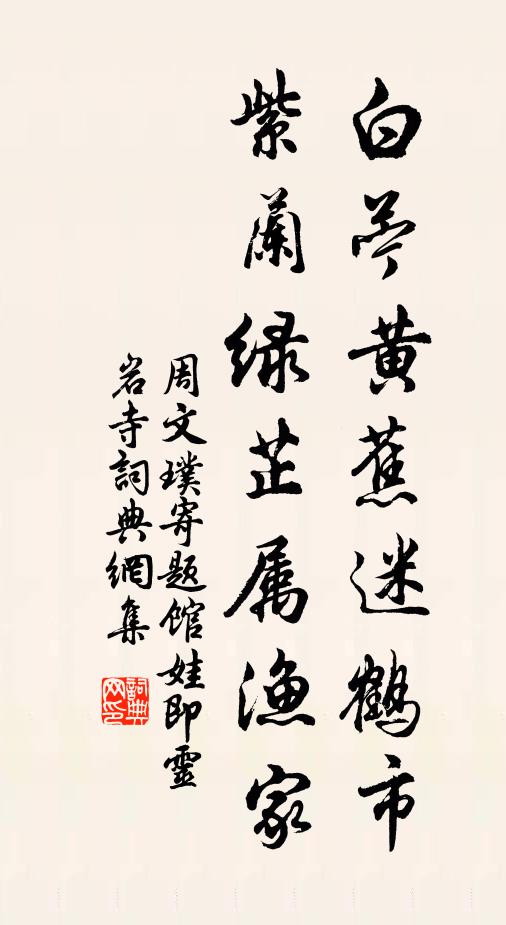 白苧黄蕉迷鶴市
紫蘭绿芷属漁家
周文璞寄题馆娃即靈
岩寺詞典網集
詞典网印